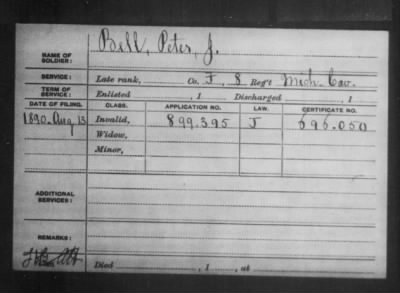 NAME OF SOLDIER: Bell, Peter, J.
SERVICE: Late rank, Co. F, 8 Reg't Mich. Cav.
TERM OF SERVICE: Enlisted , 1 Discharged , 1
DATE OF FILING. CLASS. APPLICATION NO. LAW. CERTIFICATE NO.
1890. Aug. 13 Invalid, 899.395 J 696.050
Widow,
Minor,
ADDITIONAL SERVICES:
REMARKS:
Died , 1 , at